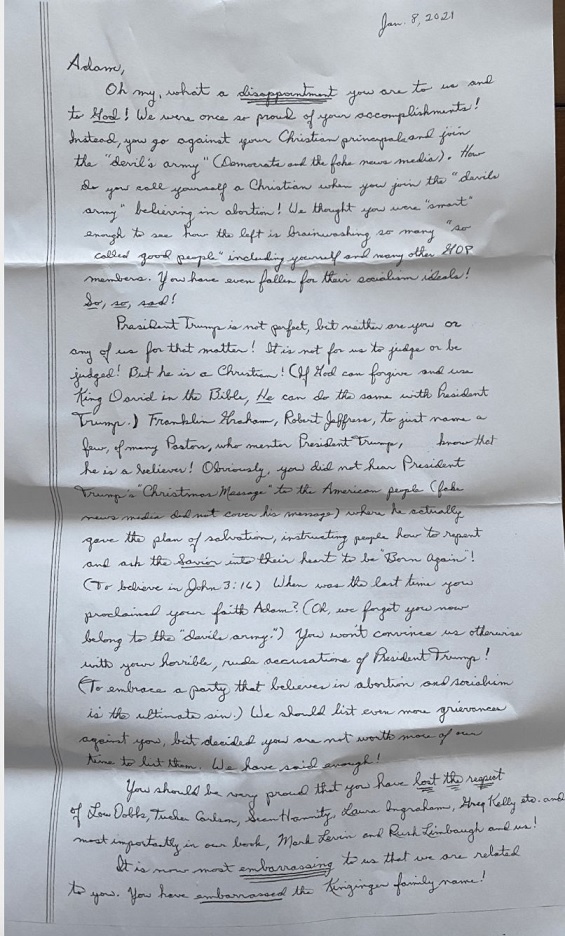 Jan. 8, 2021
Adam,
Oh my, what a disappointment you are to us and
to God! We were once so proud of your accomplishments!
Instead, you go against your Christian principals and join
the "devil's army" (Democrats and the fake news media). How
do you call yourself a Christian when you join the "devils
army" believing in abortion! We thought you were "smart"
enough to see how the left is brainwashing so many "so
called good people" including yourself and many other GOP
members. You have even fallen for their socialism ideals!
So, so, sad!
President Trump is not perfect, but neither are you or
any of us for that matter! It is not for us to judge or be
judged! But he is a Christian! (If God can forgive and use
King David in the Bible, He can do the same with President
Trump.) Franklin Graham, Robert Jeffress, to just name a
few, of many Pastors, who mentor President Trump, know that
he is a believer! Obviously, you did not hear President
Trump's "Christmas Message" to the American people (fake
news media did not cover his message) where he actually
gave the plan of salvation, instructing people how to repent
and ask the Savior into their heart to be "Born Again"!
(To believe in John 3:16) When was the last time you
proclaimed your faith Adam? (Oh, we forgot you now
belong to the "devils army.") You won't convince us otherwise
with your horrible, rude accusations of President Trump!
(To embrace a party that believes in abortion and socialism
is the ultimate sin.) We should list even more grievances
against you, but decided you are not worth more of our
time to list them. We have said enough!
You should be very proud that you have lost the respect
of Lou Dobbs, Tucker Carlson, Sean Hannity, Laura Ingraham, Greg Kelly etc. and
most importantly in our book, Mark Levin and Rush Limbaugh and us!
It is now most embarrassing to us that we are related
to you. You have embarrassed the Kinzinger family name!